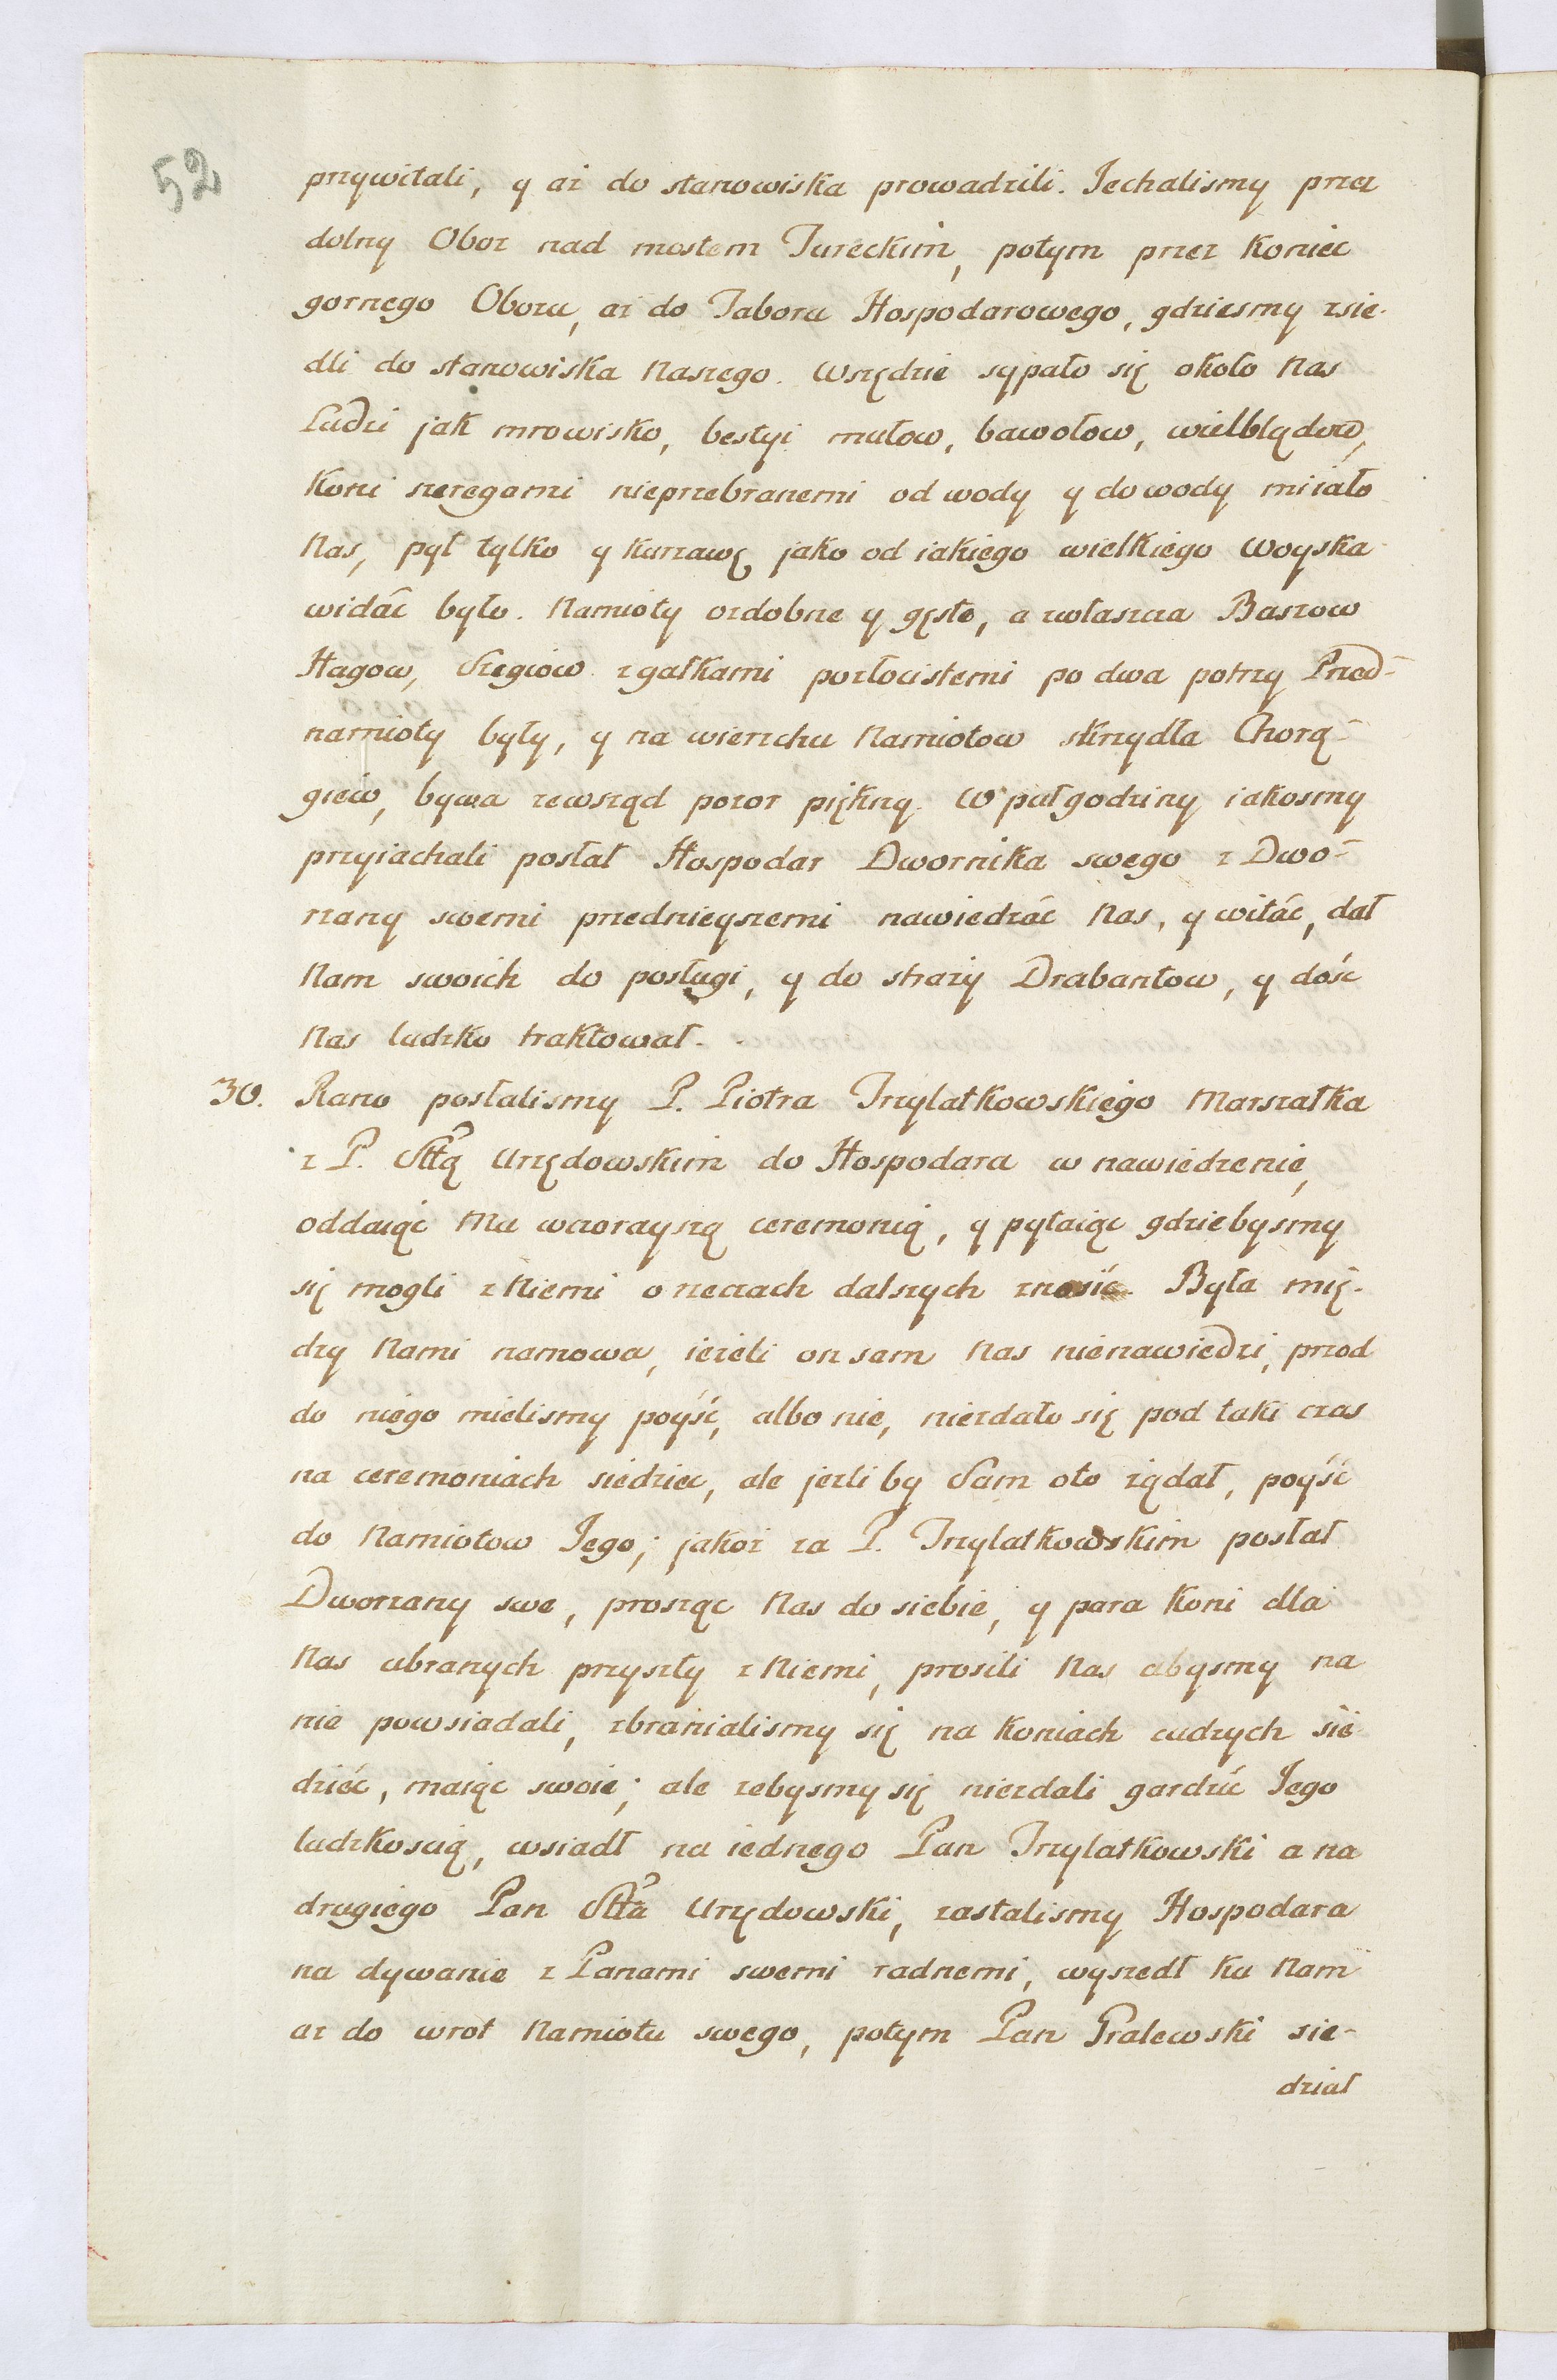 52
przywitali, y aż do stanowiska prowadzili. Jechalismy przez
dolny Oboz nad mostem Tureckim, potym przez koniec
gornego Obozu, aż do Taboru Hospodarowego, gdziesmy zsie-
dli do stanowiska naszego. Wszędzie sypało się około nas
Ludzi jak mrowisko, bestyi mułow, bawołow, wielblądow,
koni szeregami nieprzebranemi od wody y do wody miiało
nas, pył tylko y kurzawę jako od iakiego wielkiego woyska
widać było. Namioty ozdobne y gęste, a zwłaszcza Baszow
Hagow, Szegiow z gałkami pozłocistemi po dwa potrzy Przed-
namioty były, y na wierzchu Namiotow skrzydła Chorą-
giew, bywa zewsząd pozor piękny. W pułgodziny iakosmy
przyiachali posłał Hospodar Dwornika swego z Dwo-
rzany swemi przednieyszemi nawiedzać nas, y witać, dał
nam swoich do posługi, y do straży Drabantow, y dość
nas ludzko traktował.
30. Rano posłalismy P. Piotra Trzylatkowskiego Marszałka
z P. Sttą Urzędowskim do Hospodara w nawiedzenie,
oddaiąc Mu wczorayszą ceremonią, y pytaiąc gdziebysmy
się mogli z Niemi o rzeczach dalszych znosić. Była mię-
dzy Nami namowa, ieżeli on sam nas nienawiedzi, przod
do niego mielismy poyść, albo nie, niezdało się pod taki czas
na ceremoniach siedziec, ale jeżli by Sam oto żądał, poyść
do Namiotow Jego; jakoż za P. Trzylatkowskim posłał
Dworzany swe, prosząc Nas do siebie, y para koni dla
Nas ubranych przyszły z Niemi, prosili Nas abysmy na
nie powsiadali, zbranialismy się na koniach cudzych sie
dzieć, maiąc swoie; ale żebysmy się niezdali gardzić Jego
ludzkoscią, wsiadł na iednego Pan Trzylatkowski a na
drugiego Pan Stta Urzędowski, zastalismy Hospodara
na dywanie z Panami swemi radnemi, wyszedł ku Nam
aż do wrot Namiotu swego, potym Pan Gralewski sie-
dział